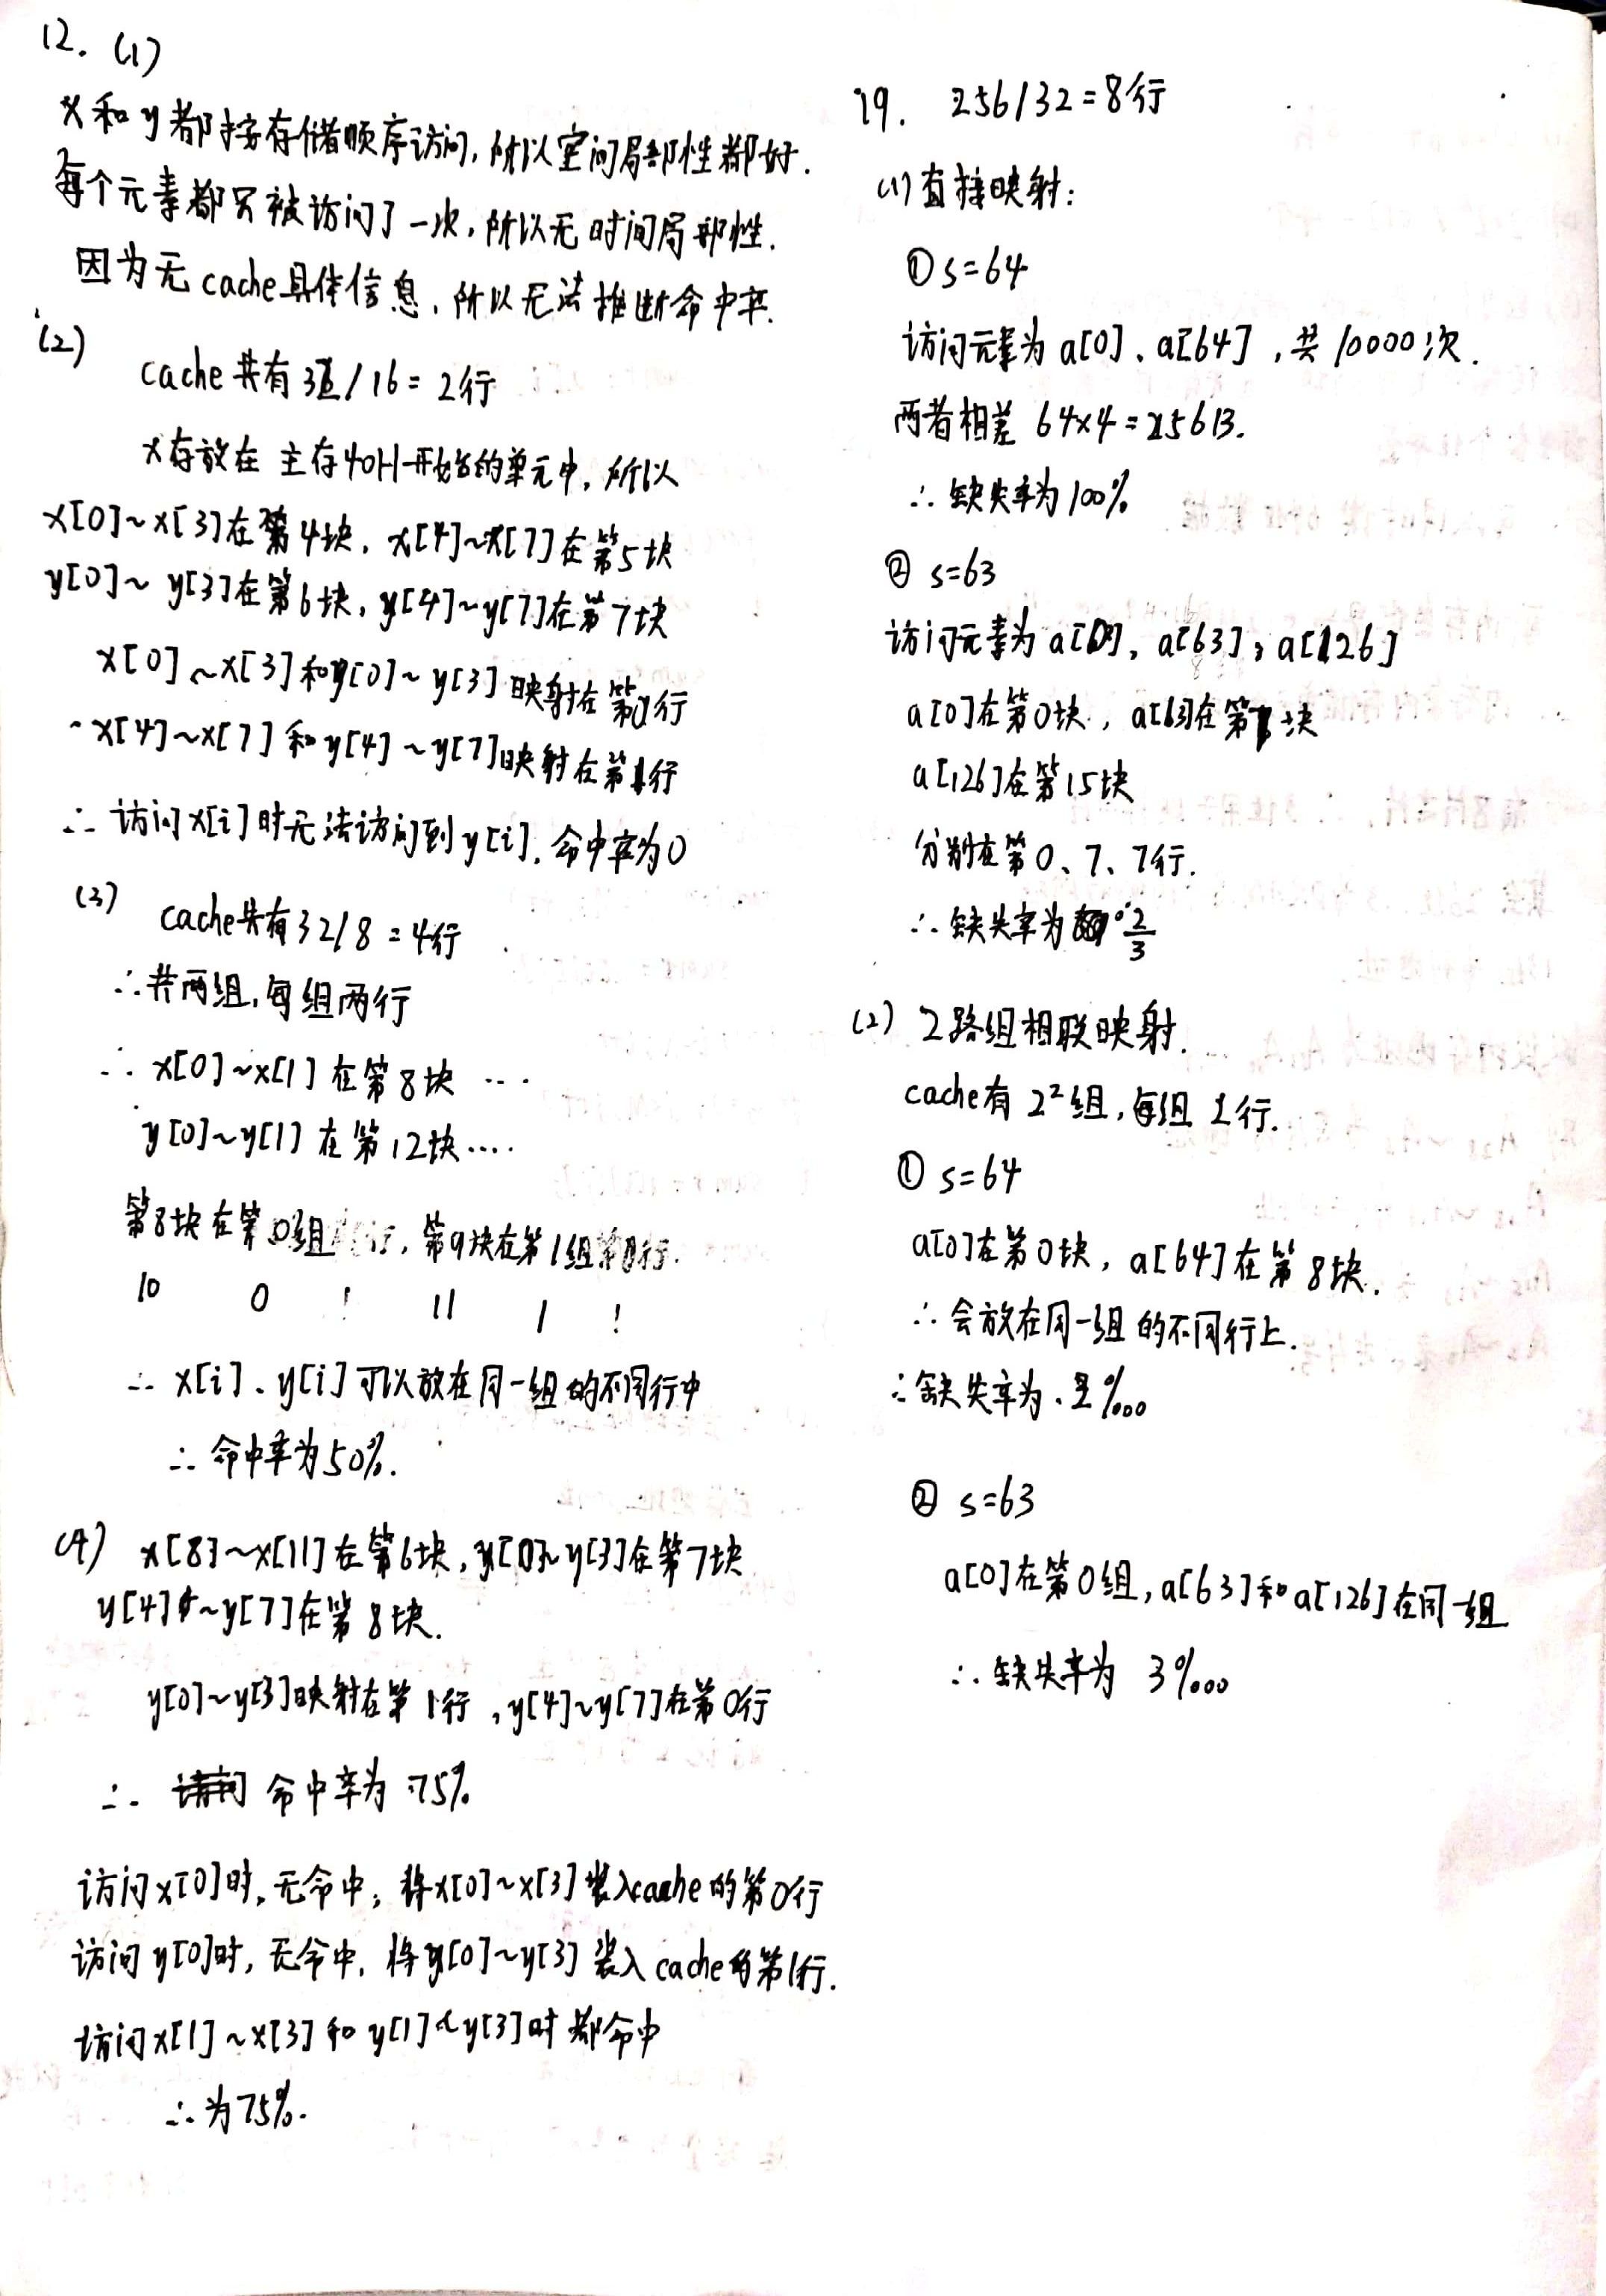 12. (1)
x和y都按存储顺序访问,所以空间局部性都好.
每个元素都只被访问了一次,所以无时间局部性.
因为无cache具体信息,所以无法推断命中率.
(2)
cache共有32/16=2行
x存放在 主存40H开始的单元中,所以
x[0]~x[3]在第4块, x[4]~x[7]在第5块
y[0]~y[3]在第6块, y[4]~y[7]在第7块
x[0]~x[3]和y[0]~y[3]映射在第0行
x[4]~x[7]和y[4]~y[7]映射在第1行
∴ 访问x[i]时无法访问到y[i],命中率为0
(3) cache共有32/8=4行
∴共两组,每组两行
∴ x[0]~x[1]在第8块 …
y[0]~y[1]在第12块….
第8块在第0组 ,第9块在第1组
10 0 11 1
∴ x[i]、y[i]可以放在同一组的不同行中
∴ 命中率为50%.
(4) x[8]~x[11]在第6块,y[0]~y[3]在第7块
y[4]~y[7]在第8块.
y[0]~y[3]映射在第1行,y[4]~y[7]在第0行
∴ 命中率为75%
访问x[0]时,无命中,将x[0]~x[3]装入cache的第0行
访问y[0]时,无命中,将y[0]~y[3]装入cache的第1行.
访问x[1]~x[3]和y[1]~y[3]时都命中
∴为75%.
19. 256/32=8行
(1)直接映射:
① s=64
访问元素为a[0]、a[64],共10000次.
两者相差 64×4=256B.
∴ 缺失率为100%
② s=63
访问元素为a[0], a[63], a[126]
a[0]在第0块, a[63]在第7块
a[126]在第15块
分别在第0、7、7行.
∴ 缺失率为 2/3
(2) 2路组相联映射.
cache有2²组,每组2行.
① s=64
a[0]在第0块, a[64]在第8块.
∴ 会放在同一组的不同行上.
∴缺失率为 2‱
② s=63
a[0]在第0组,a[63]和a[126]在同一组
∴ 缺失率为 3‱